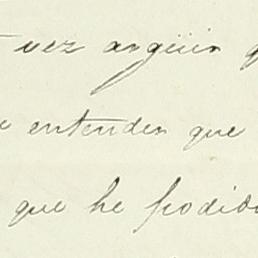 vez argüir q
entender que
que he podido